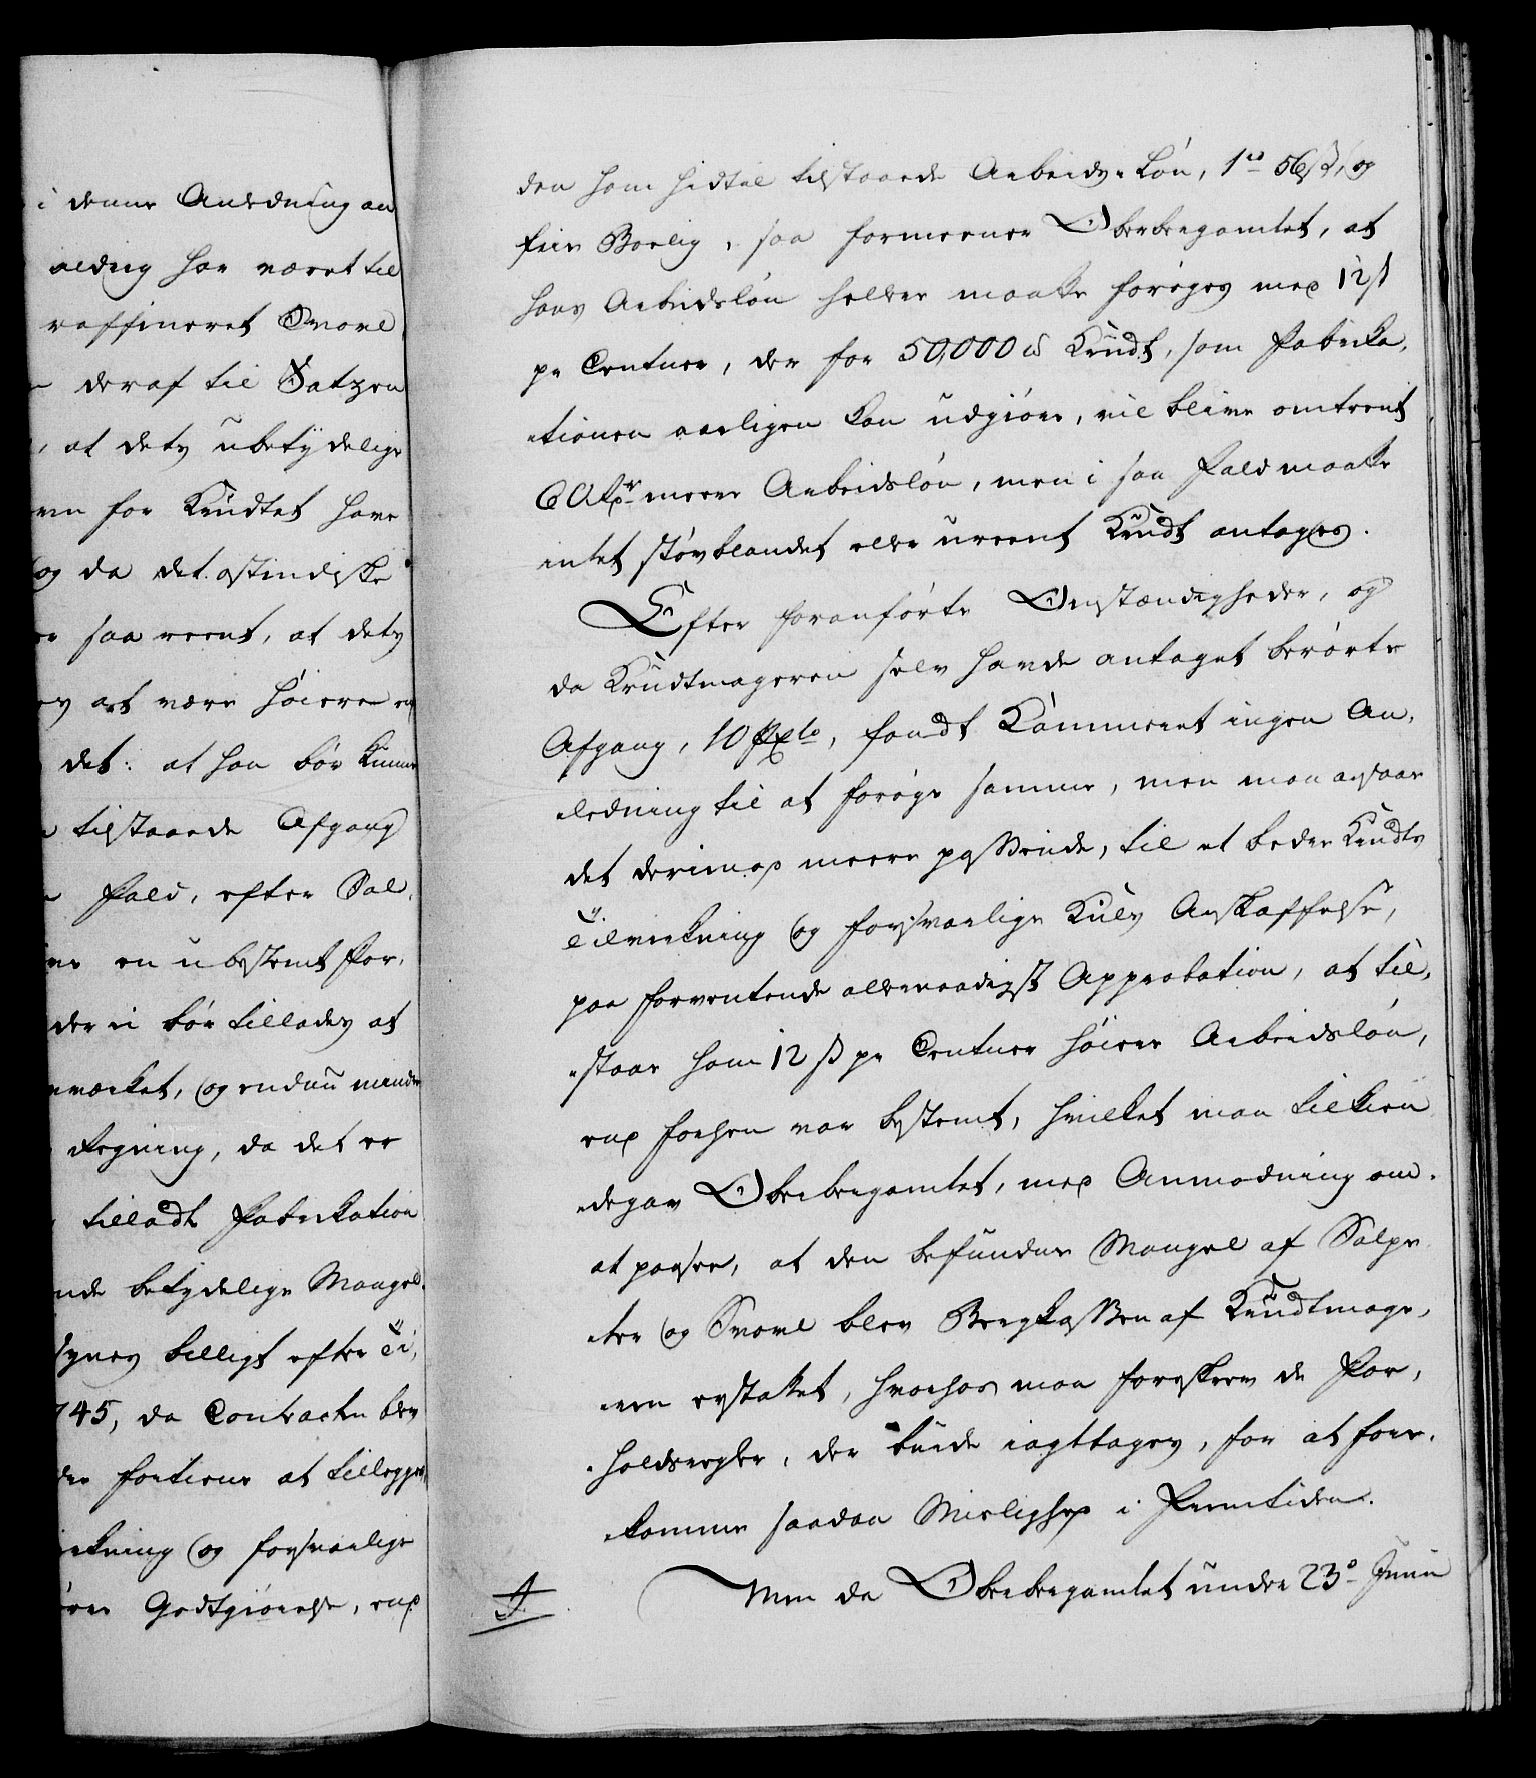 i denne Anledning an
aldrig har været til
raffineret Svovl
deraf til Satzen
, at dets ubetydelige
for Krudtet have
og da det ostindiske
saa reent, at dets
at være høiere
det: at han bør kunne
tilstaaede Afgang
Fald, efter Sal
en ubestemt For
der ei bør tillades at
værket, og endnu mindre
Regning, da det er
tilladt Fabrikation
betydelige Mangel
synes billigt efter Ti,
745, da Contracten blev
fortiene at tillegges
virkning og forsvarlige
Godtgiørelse, end
den ham hidtil tilstaaede Arbeids-Løn, 1rd 56 ß, og
frie Boelig, saa formeener Oberbergamtet, at
hans Arbeidsløn heller maatte forøges med 12 ß
pr Centner, der for 50,000 lb Krudt, som Fabrika,
-tionen aarligen kan udgiøre, vil blive omtrent
60 Rdr meere Arbeidsløn, men i saa Fald maatte
intet støvblandet eller ureent Krudt antages.
Efter foranførte Omstændigheder, og
da Krudtmageren selv havde antaget berørte
Afgang, 10 PCto, fandt Kammeret ingen An,
-ledning til at forøge samme, men man ansaae
det derimod meere passende, til et bedre Krudts
Tilvirkning og forsvarlige Kuls Anskaffelse,
paa forventende allernaadigst Approbation, at til,
-staae ham 12 ß pr Centner høiere Arbeidsløn,
end forhen var bestemt, hvilket man tilkien
-degav Oberbergamtet, med Anmodning om
at paasee, at den befundne Mangel af Salpe
-ter og Svovl blev Bergkassen af Krudtmage,
-ren erstattet, hvorhos man foreskrev de For,
-holdsregler, der burde iagttages, for at fore,
-komme saadan Mislighed i Fremtiden.
Men da Oberbergamtet under 23de Junii